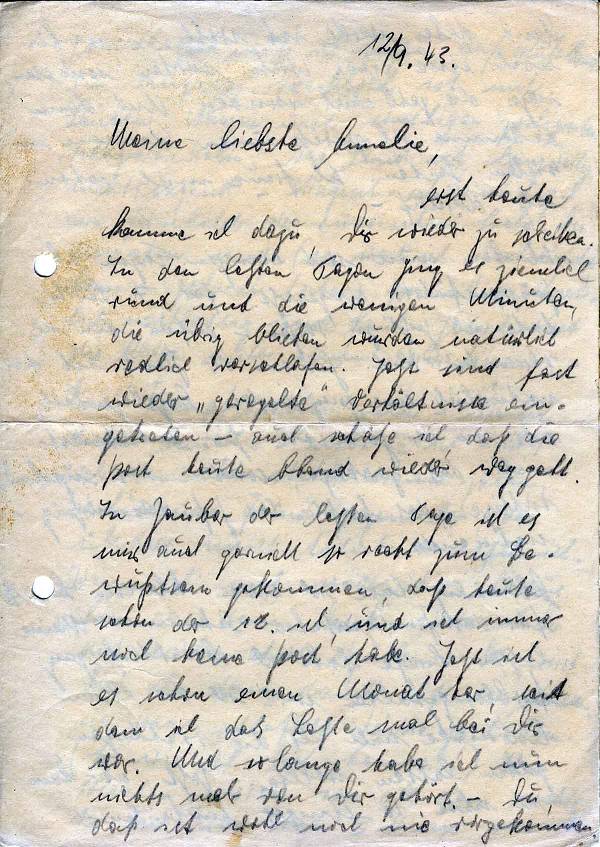 12/9. 43.
Meine liebste Annelie,
erst heute
komme ich dazu, Dir wieder zu schreiben.
In den letzten Tagen ging es ziemlich
rund und die wenigen Minuten,
die übrig blieben wurden natürlich
redlich verschlafen. Jetzt sind fast
wieder „geregelte“ Verhältnisse ein-
getreten – auch schätze ich, daß die
Post heute Abend wieder weggeht.
Im Zauber der letzten Tage ist es
mir auch garnicht so recht zum Be-
wußtsein gekommen, daß heute
schon der 12. ist, und ich immer
noch keine Post habe. Jetzt ist
es schon einen Monat her, seit
dem ich das letzte mal bei Dir
war. Und solange habe ich nun
nichts mehr von Dir gehört. – Du,
das ist wohl noch nie vorgekommen,